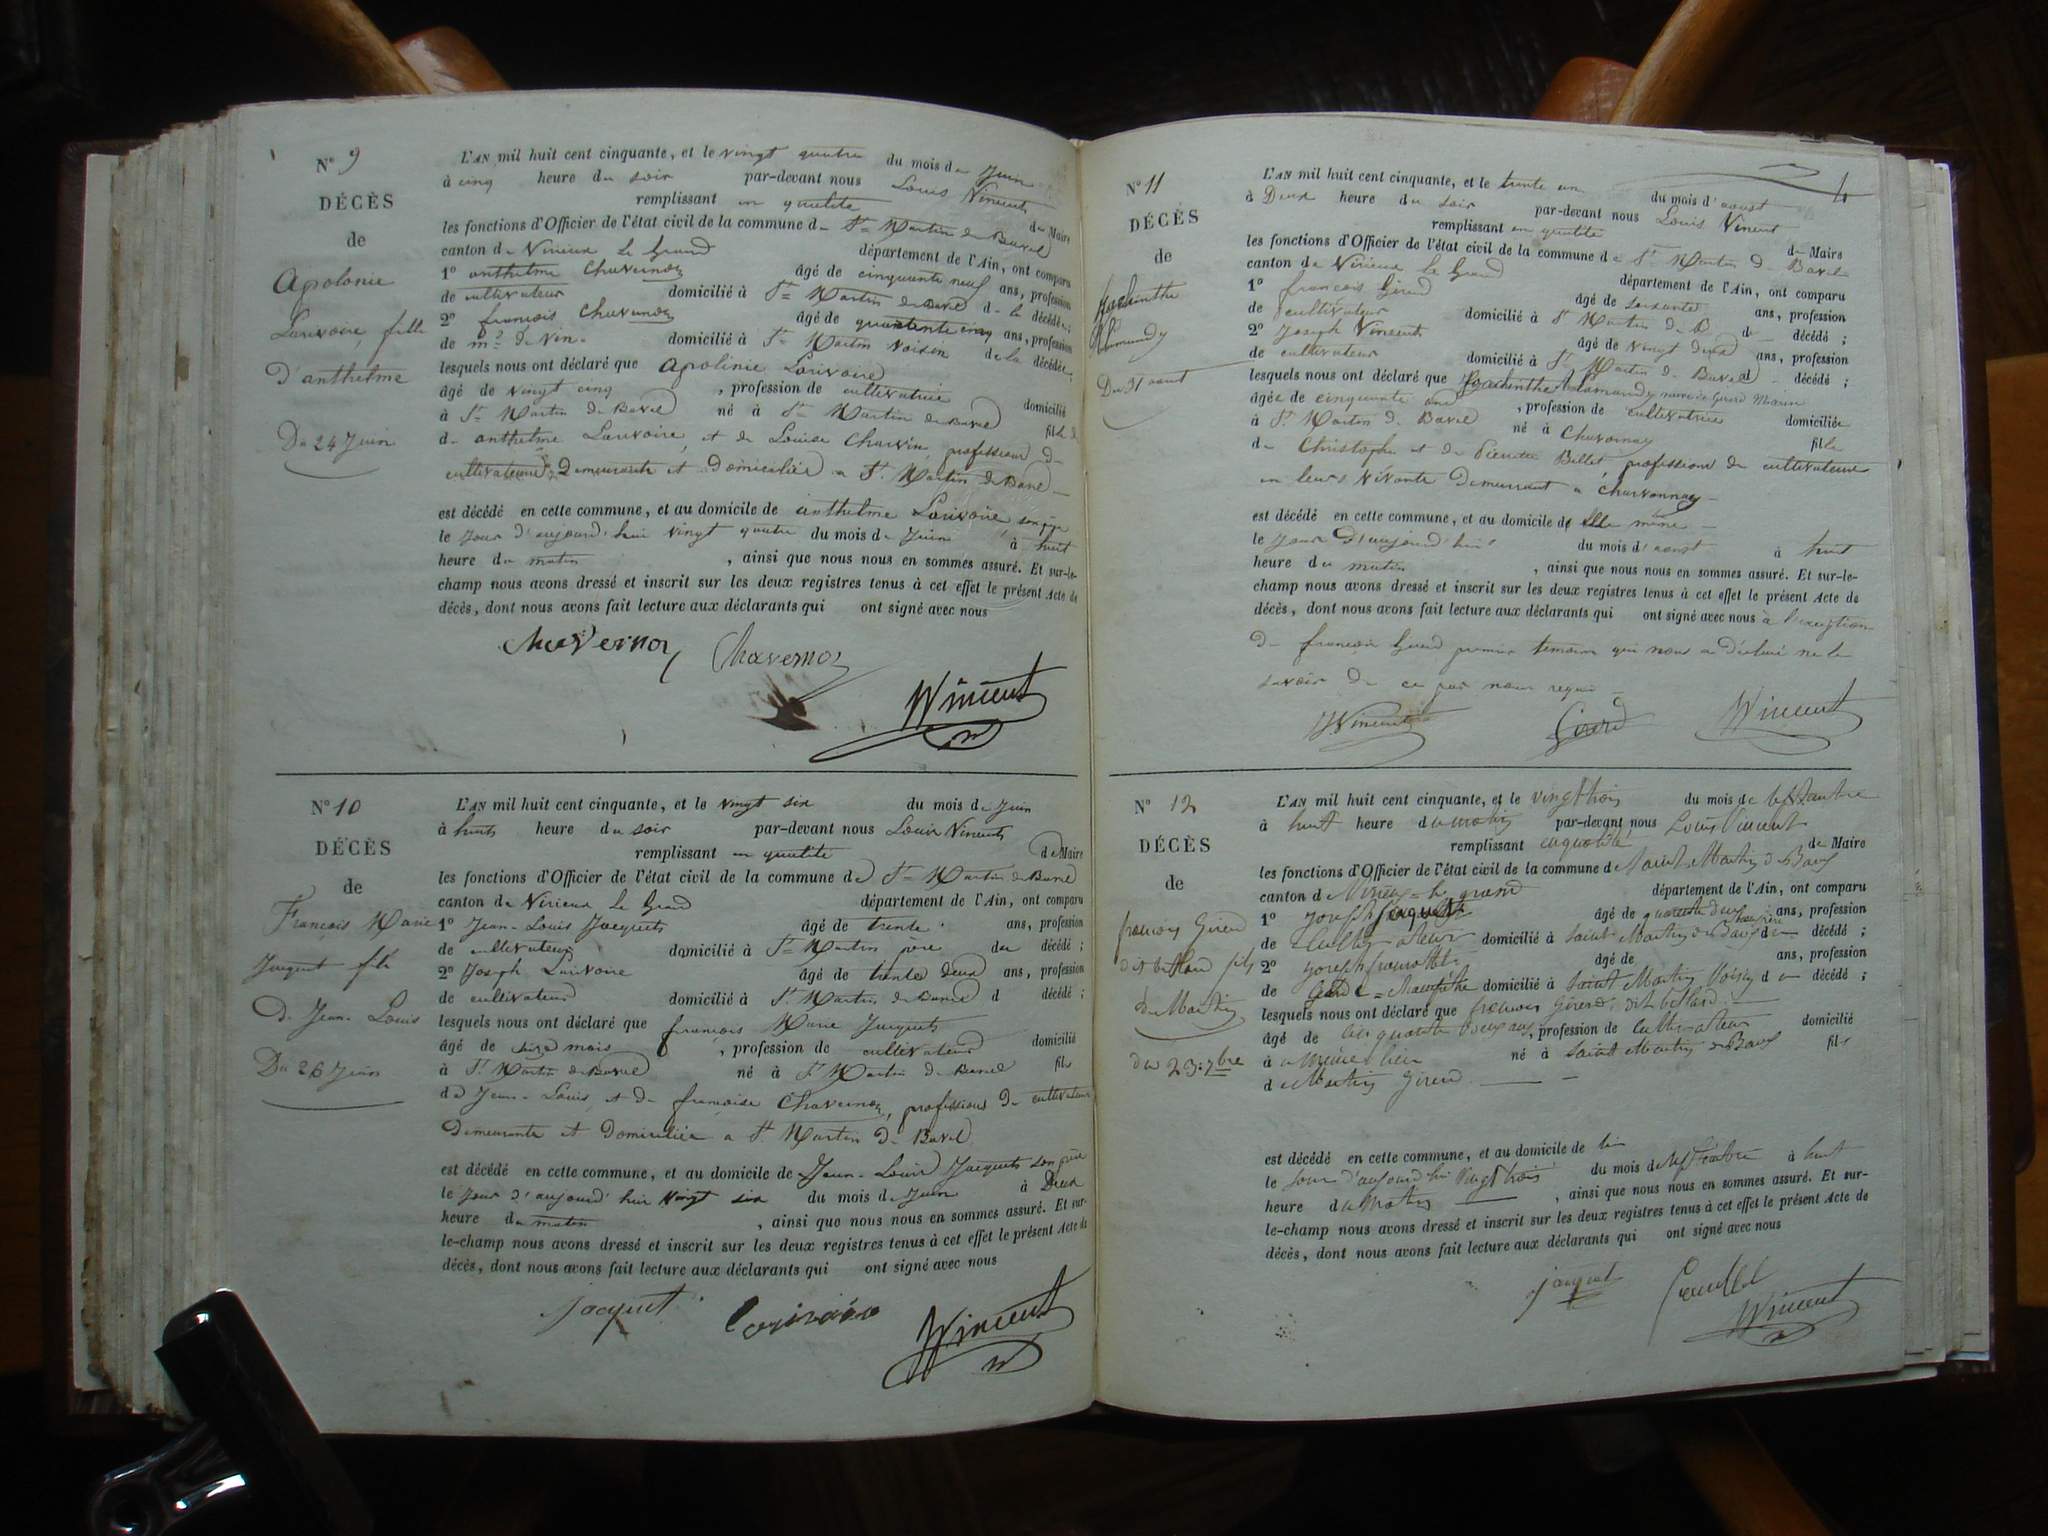 N° 9
DÉCÈS
de
Apolonie
Larivoire, fille
D'anthelme
Du 24 Juin
L'AN mil huit cent cinquante, et le vingt quatre du mois de Juin
à cinq heure du soir par-devant nous Louis Vincent
remplissant en qualité de Maire
les fonctions d'Officier de l'état civil de la commune de St Martin de Bavel
canton de Virieux Le Grand département de l'Ain, ont comparu
1° anthelme Chavernoz âgé de cinquante neuf ans, profession
de cultivateur domicilié à St Martin de Bavel d la décédée;
2° françois Chavernoz âgé de ans, profession
de domicilié à St Martin voisin de la décédée;
lesquels nous ont déclaré que Apolinie Larivoire
âgé de vingt cinq, profession de cultivatrice domicilié
à St Martin de Bavel né à St Martin de Bavel fille
de anthelme Larivoire, et de Louise Charvin, profession de
cultivateurs, Demeurants et domiciliés a St Martin de Bavel
est décédé en cette commune, et au domicile de anthelme Larivoire son père
le jour d'aujourd'hui vingt quatre du mois de Juin à huit
heure du matin, ainsi que nous nous en sommes assuré. Et sur-le-
champ nous avons dressé et inscrit sur les deux registres tenus à cet effet le présent Acte de
décès, dont nous avons fait lecture aux déclarants qui ont signé avec nous
Chavernoz Chavernoz
Vincent
N° 10
DÉCÈS
de
François Marie
Jacquet fils
De Jean-Louis
Du 26 Juin
L'AN mil huit cent cinquante, et le vingt six du mois de Juin
à huit heure du soir par-devant nous Louis Vincent
remplissant en qualité de Maire
les fonctions d'Officier de l'état civil de la commune de St Martin de Bavel
canton de Virieux Le Grand département de l'Ain, ont comparu
1° Jean-Louis Jacquet âgé de trente ans, profession
de cultivateur domicilié à St Martin père du décédé;
2° Joseph Larivoire âgé de trente deux ans, profession
de cultivateur domicilié à St Martin de Bavel d décédé;
lesquels nous ont déclaré que françois Marie Jacquet
âgé de mois, profession de cultivateur domicilié
à St Martin de Bavel né à St Martin de Bavel fils
de Jean-Louis, et de françoise Chavernoz, professions de cultivateurs
Demeurants et Domiciliés a St Martin de Bavel
est décédé en cette commune, et au domicile de Jean-Louis Jacquet son père
le jour d'aujourd'hui vingt six du mois de Juin à Deux
heure du matin, ainsi que nous nous en sommes assuré. Et sur-
le-champ nous avons dressé et inscrit sur les deux registres tenus à cet effet le présent Acte de
décès, dont nous avons fait lecture aux déclarants qui ont signé avec nous
Jacquet Larivoire Vincent
N° 11
DÉCÈS
de
Du 31 aout
L'AN mil huit cent cinquante, et le trente un du mois d'aoust
à Deux heure du soir par-devant nous Louis Vincent
remplissant en qualité de Maire
les fonctions d'Officier de l'état civil de la commune de St Martin de Bavel
canton de Virieux Le Grand département de l'Ain, ont comparu
1° françois Girod âgé de soixante ans, profession
de cultivateur domicilié à St Martin de B d décédé;
2° Joseph Vincent âgé de vingt deux ans, profession
de cultivateur domicilié à St Martin de Bavel d décédé;
lesquels nous ont déclaré que
âgée de cinquante, profession de cultivatrice domiciliée
à St Martin de Bavel né à Chavornay fille
de Christophe et de Pierrette Billet, professions de cultivateurs
en leurs vivants Demeurant a Charvonnay
est décédé en cette commune, et au domicile d Elle même
le jour D'aujourd'hui du mois d'aoust à huit
heure du matin, ainsi que nous nous en sommes assuré. Et sur-le-
champ nous avons dressé et inscrit sur les deux registres tenus à cet effet le présent Acte de
décès, dont nous avons fait lecture aux déclarants qui ont signé avec nous à l'exception
De françois Girod premier temoin qui nous a déclaré ne le
savoir De ce par nous requis
Vincent Girod Vincent
N° 12
DÉCÈS
de
françois Girod
dit billard fils
de Martin
du 23 7bre
L'AN mil huit cent cinquante, et le vingt trois du mois de septembre
à huit heure du matin par-devant nous Louis Vincent
remplissant en qualité de Maire
les fonctions d'Officier de l'état civil de la commune de Saint Martin de Bavel
canton de Virieux le grand département de l'Ain, ont comparu
1° joseph jacquet âgé de quarante deux ans, profession
de cultivateur domicilié à Saint Martin de Bavel d décédé;
2° joseph âgé de ans, profession
de garde champêtre domicilié à Saint Martin voisin du décédé;
lesquels nous ont déclaré que françois Girod dit billard
âgé de cinquante deux ans, profession de cultivateur domicilié
à meme lieu né à Saint Martin de Bavel fils
de Martin Girod
est décédé en cette commune, et au domicile de lui
le jour d'aujourd'hui vingt trois du mois de septembre à huit
heure du matin, ainsi que nous nous en sommes assuré. Et sur-
le-champ nous avons dressé et inscrit sur les deux registres tenus à cet effet le présent Acte de
décès, dont nous avons fait lecture aux déclarants qui ont signé avec nous
jacquet
Vincent